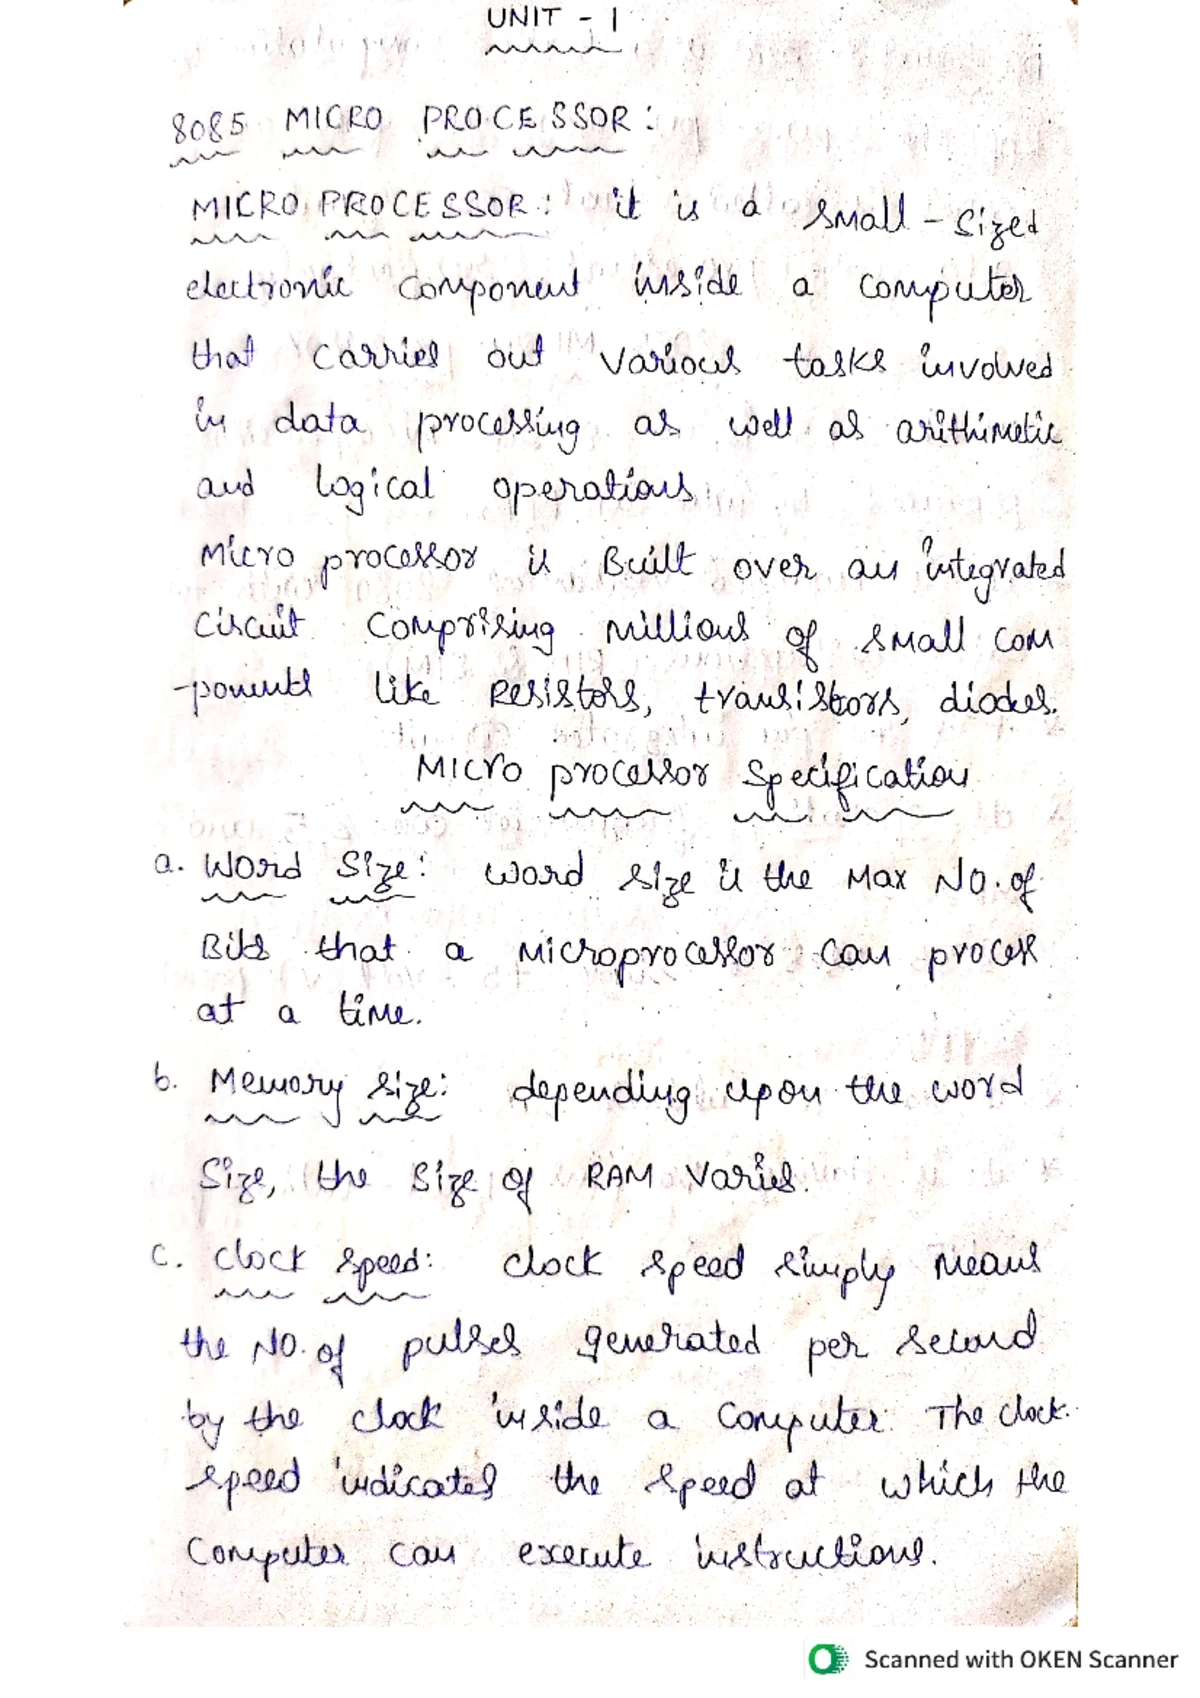 UNIT - 1
8085 MICRO PROCESSOR:
MICRO PROCESSOR: it is a small - sized
electronic component inside a computer
that carries out various tasks involved
in data processing as well as arithimetic
and logical operations
Micro processor is Built over an integrated
circuit comprising millions of small com
-ponents like Resistors, transistors, diodes.
Micro processor Specification
a. Word Size: word size is the Max No. of
Bits that a Microprocessor can process
at a time.
b. Memory size: depending upon the word
Size, the Size of RAM varies.
c. clock speed: clock speed simply means
the No. of pulses generated per second
by the clock inside a computer. The clock.
speed indicates the speed at which the
computer can execute instructions.
Scanned with OKEN Scanner